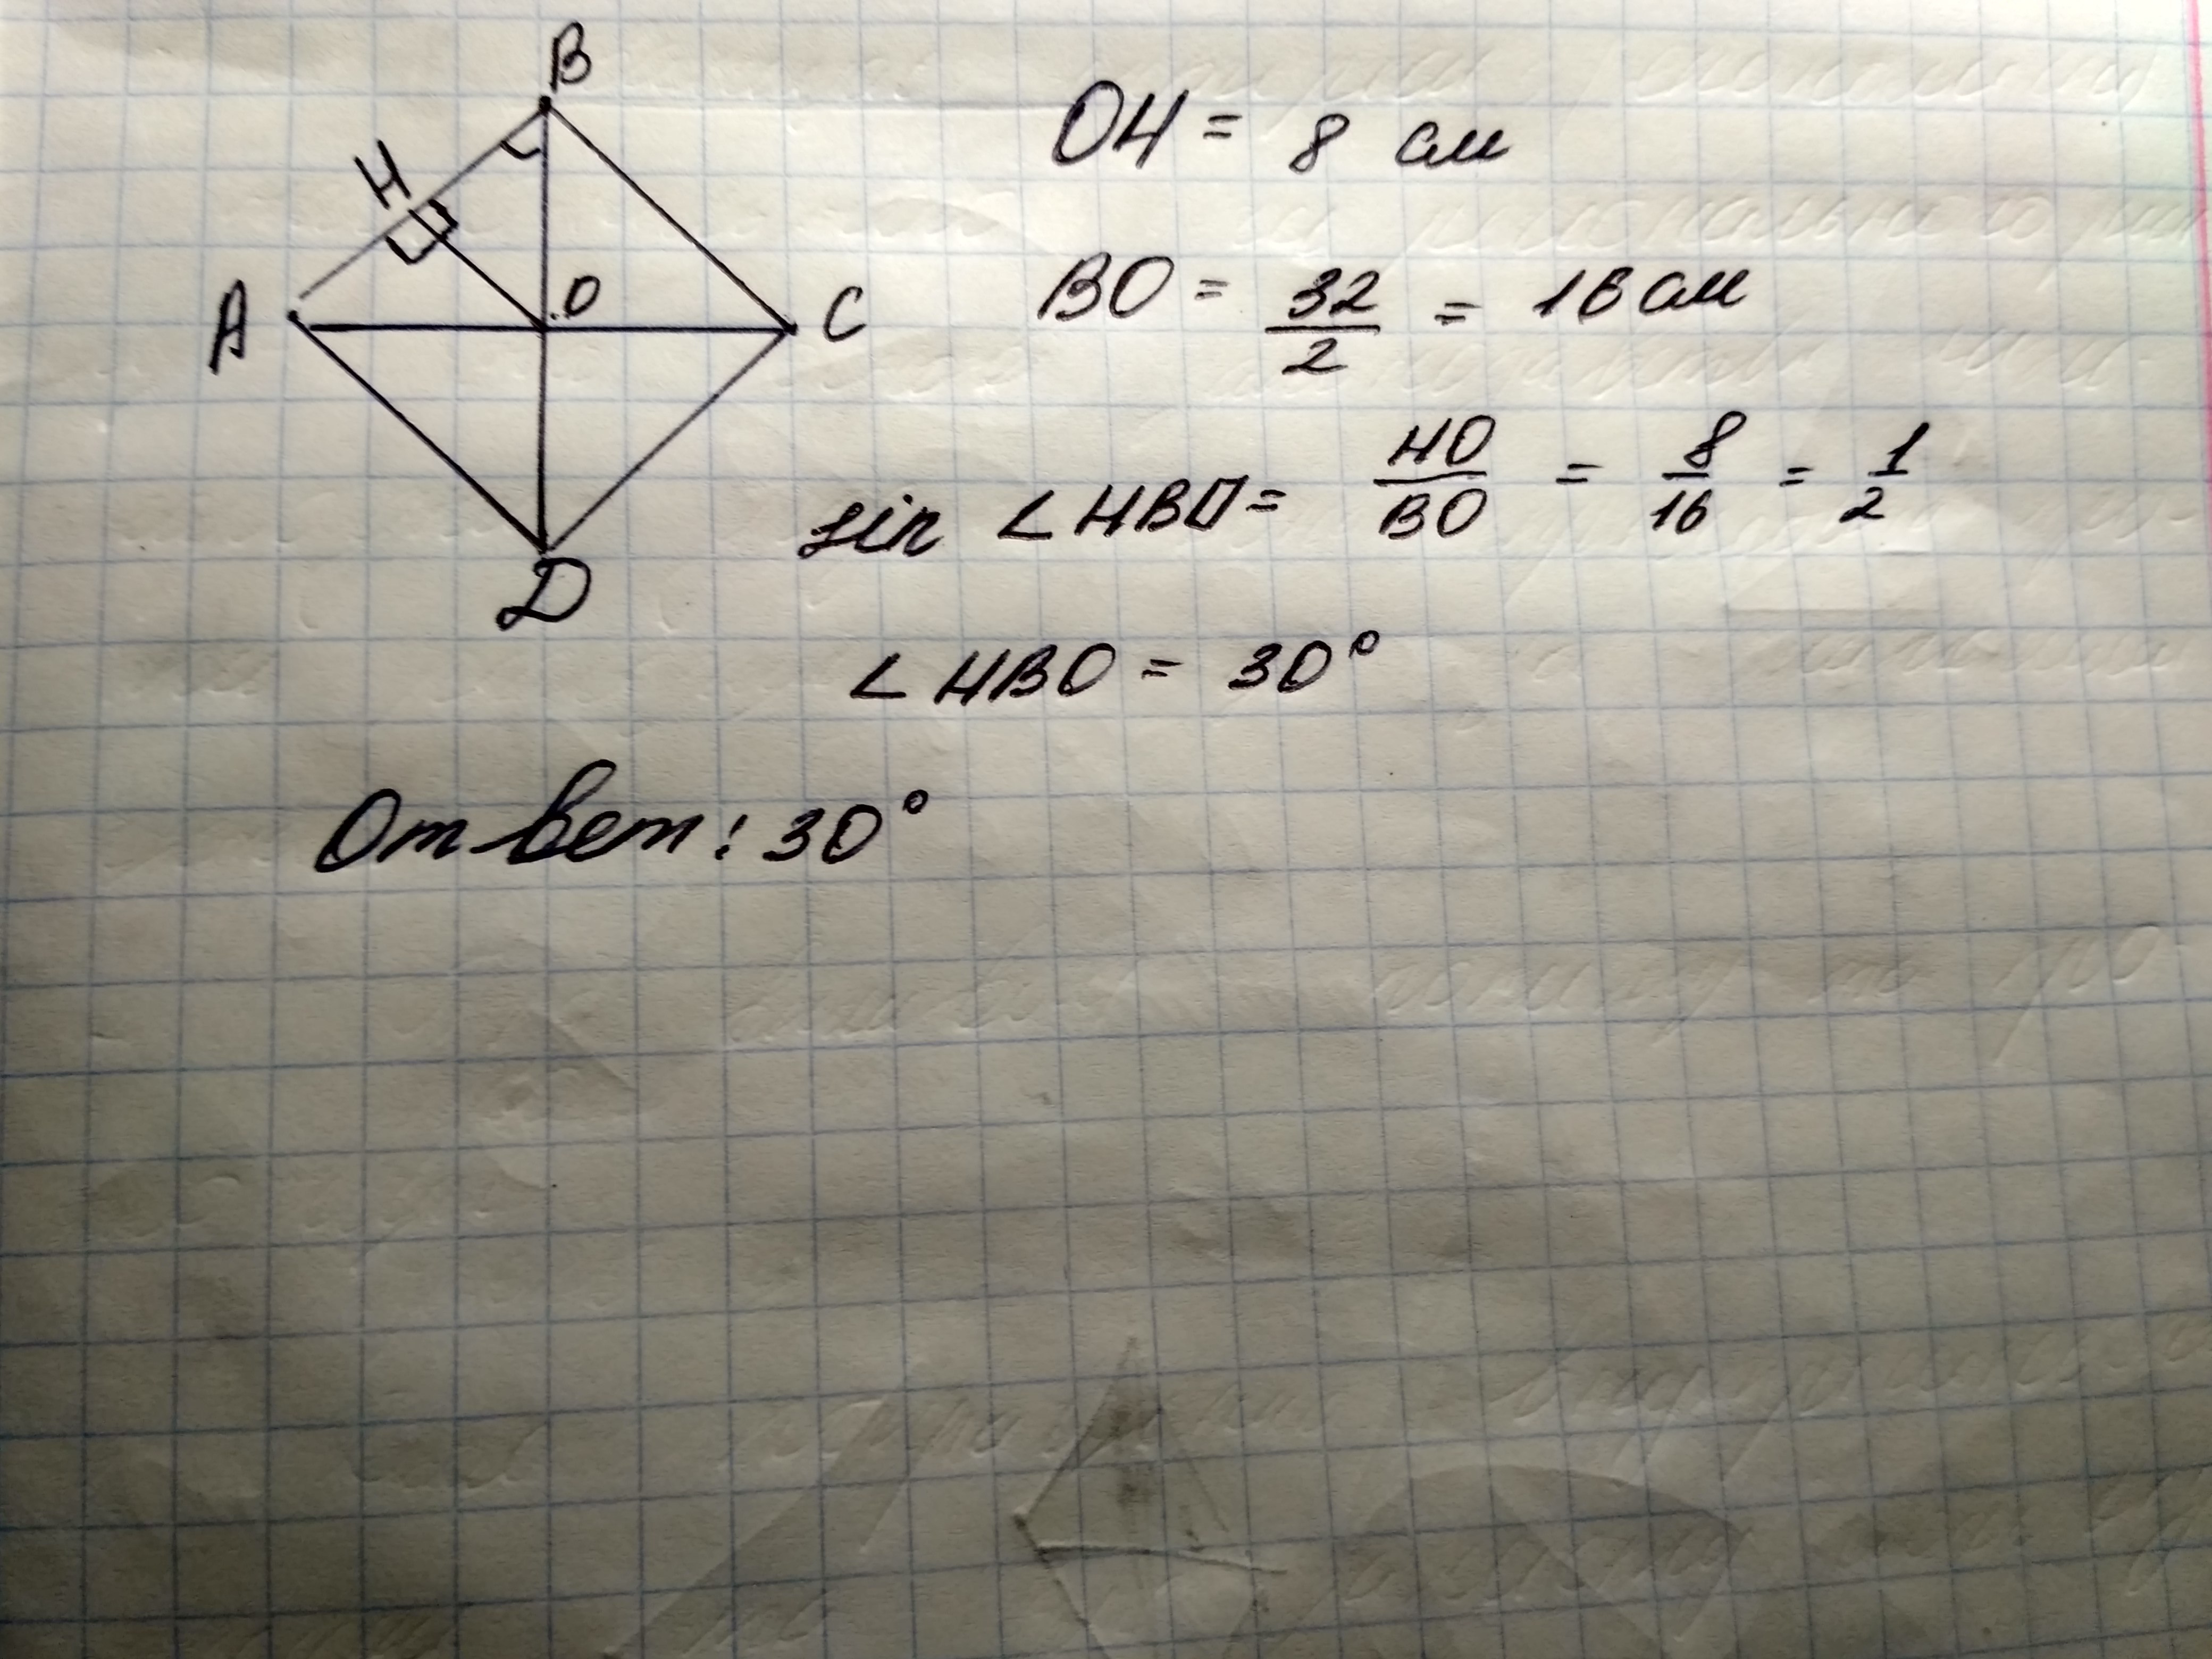 B
H
A
O
C
D
OH = 8 см
BO = 32/2 = 16 см
sin ∠HBO = HO/BO = 8/16 = 1/2
∠HBO = 30°
Ответ: 30°